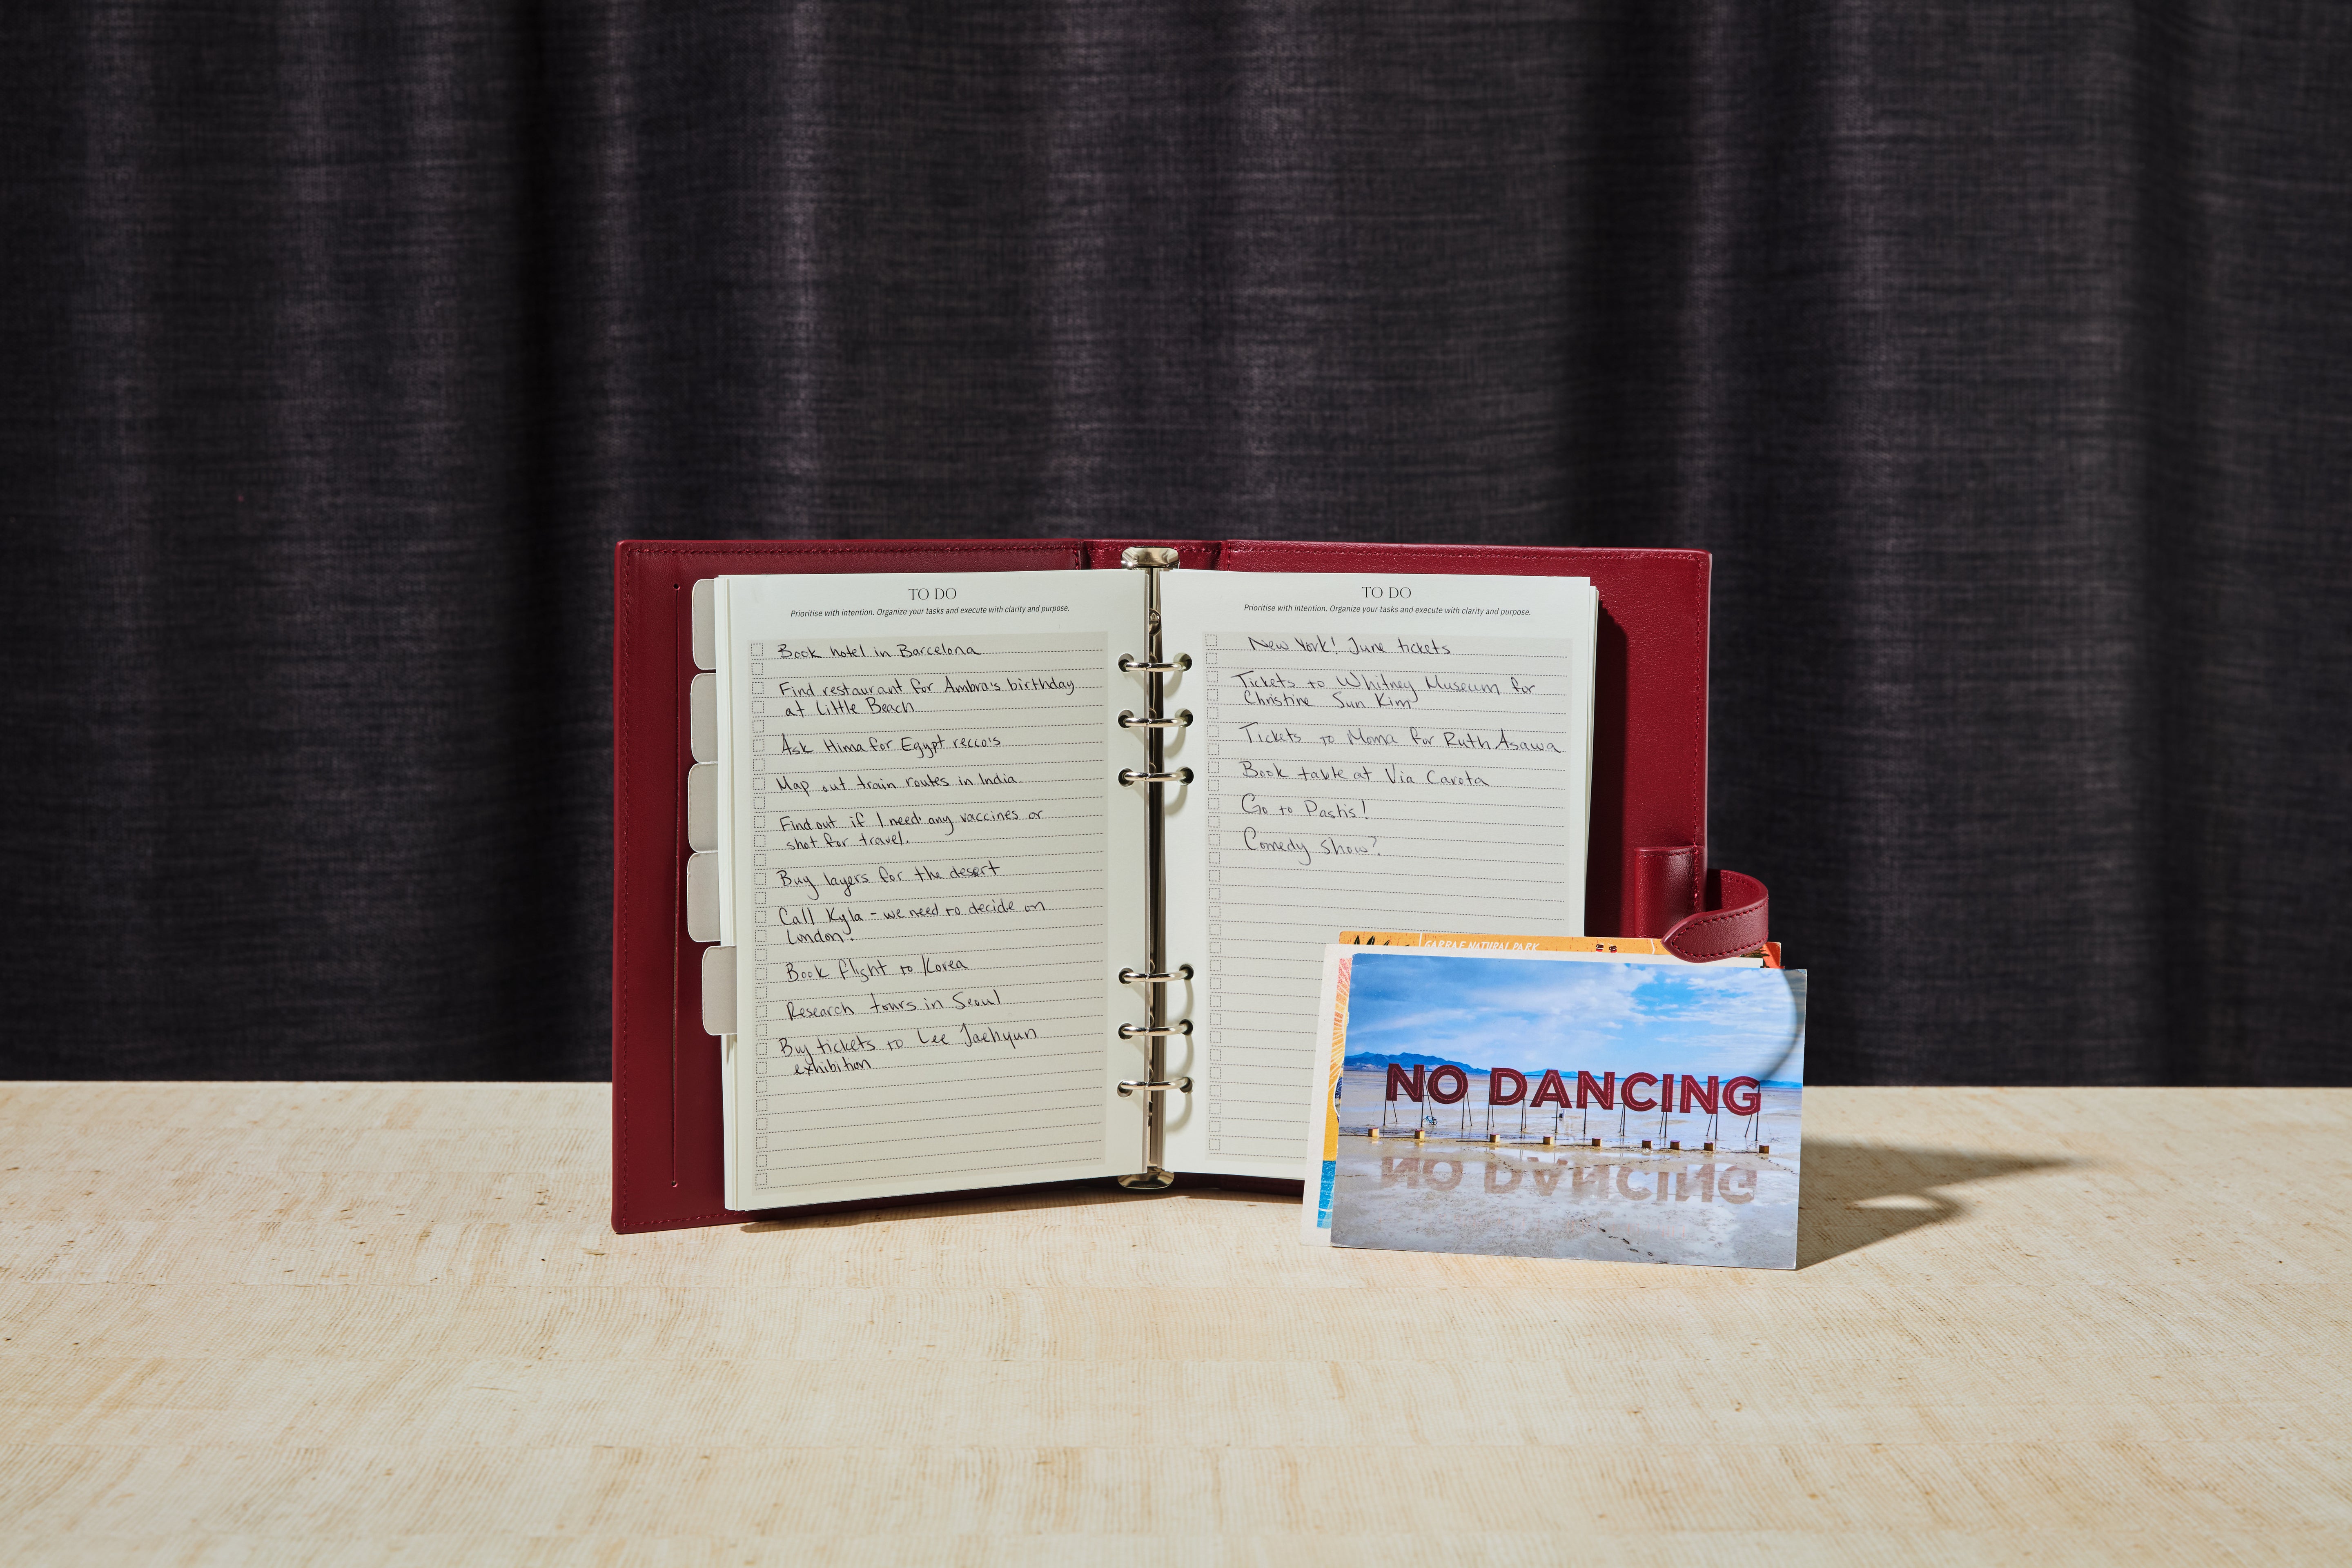 TO DO
Prioritise with intention. Organize your tasks and execute with clarity and purpose.
Book hotel in Barcelona
Find restaurant for Ambra's birthday
at Little Beach
Ask Hima for Egypt recco's
Map out train routes in India.
Find out if I need any vaccines or
shot for travel.
Buy layers for the desert
Call Kyla - we need to decide on
London!
Book flight to Korea
Research tours in Seoul
Buy tickets to Lee Jaehyun
exhibition
TO DO
Prioritise with intention. Organize your tasks and execute with clarity and purpose.
New York! June tickets
Tickets to Whitney Museum for
Christine Sun Kim
Tickets to Moma for Ruth Asawa
Book table at Via Carota
Go to Pastis!
Comedy show?
GARRAF NATURAL PARK
NO DANCING